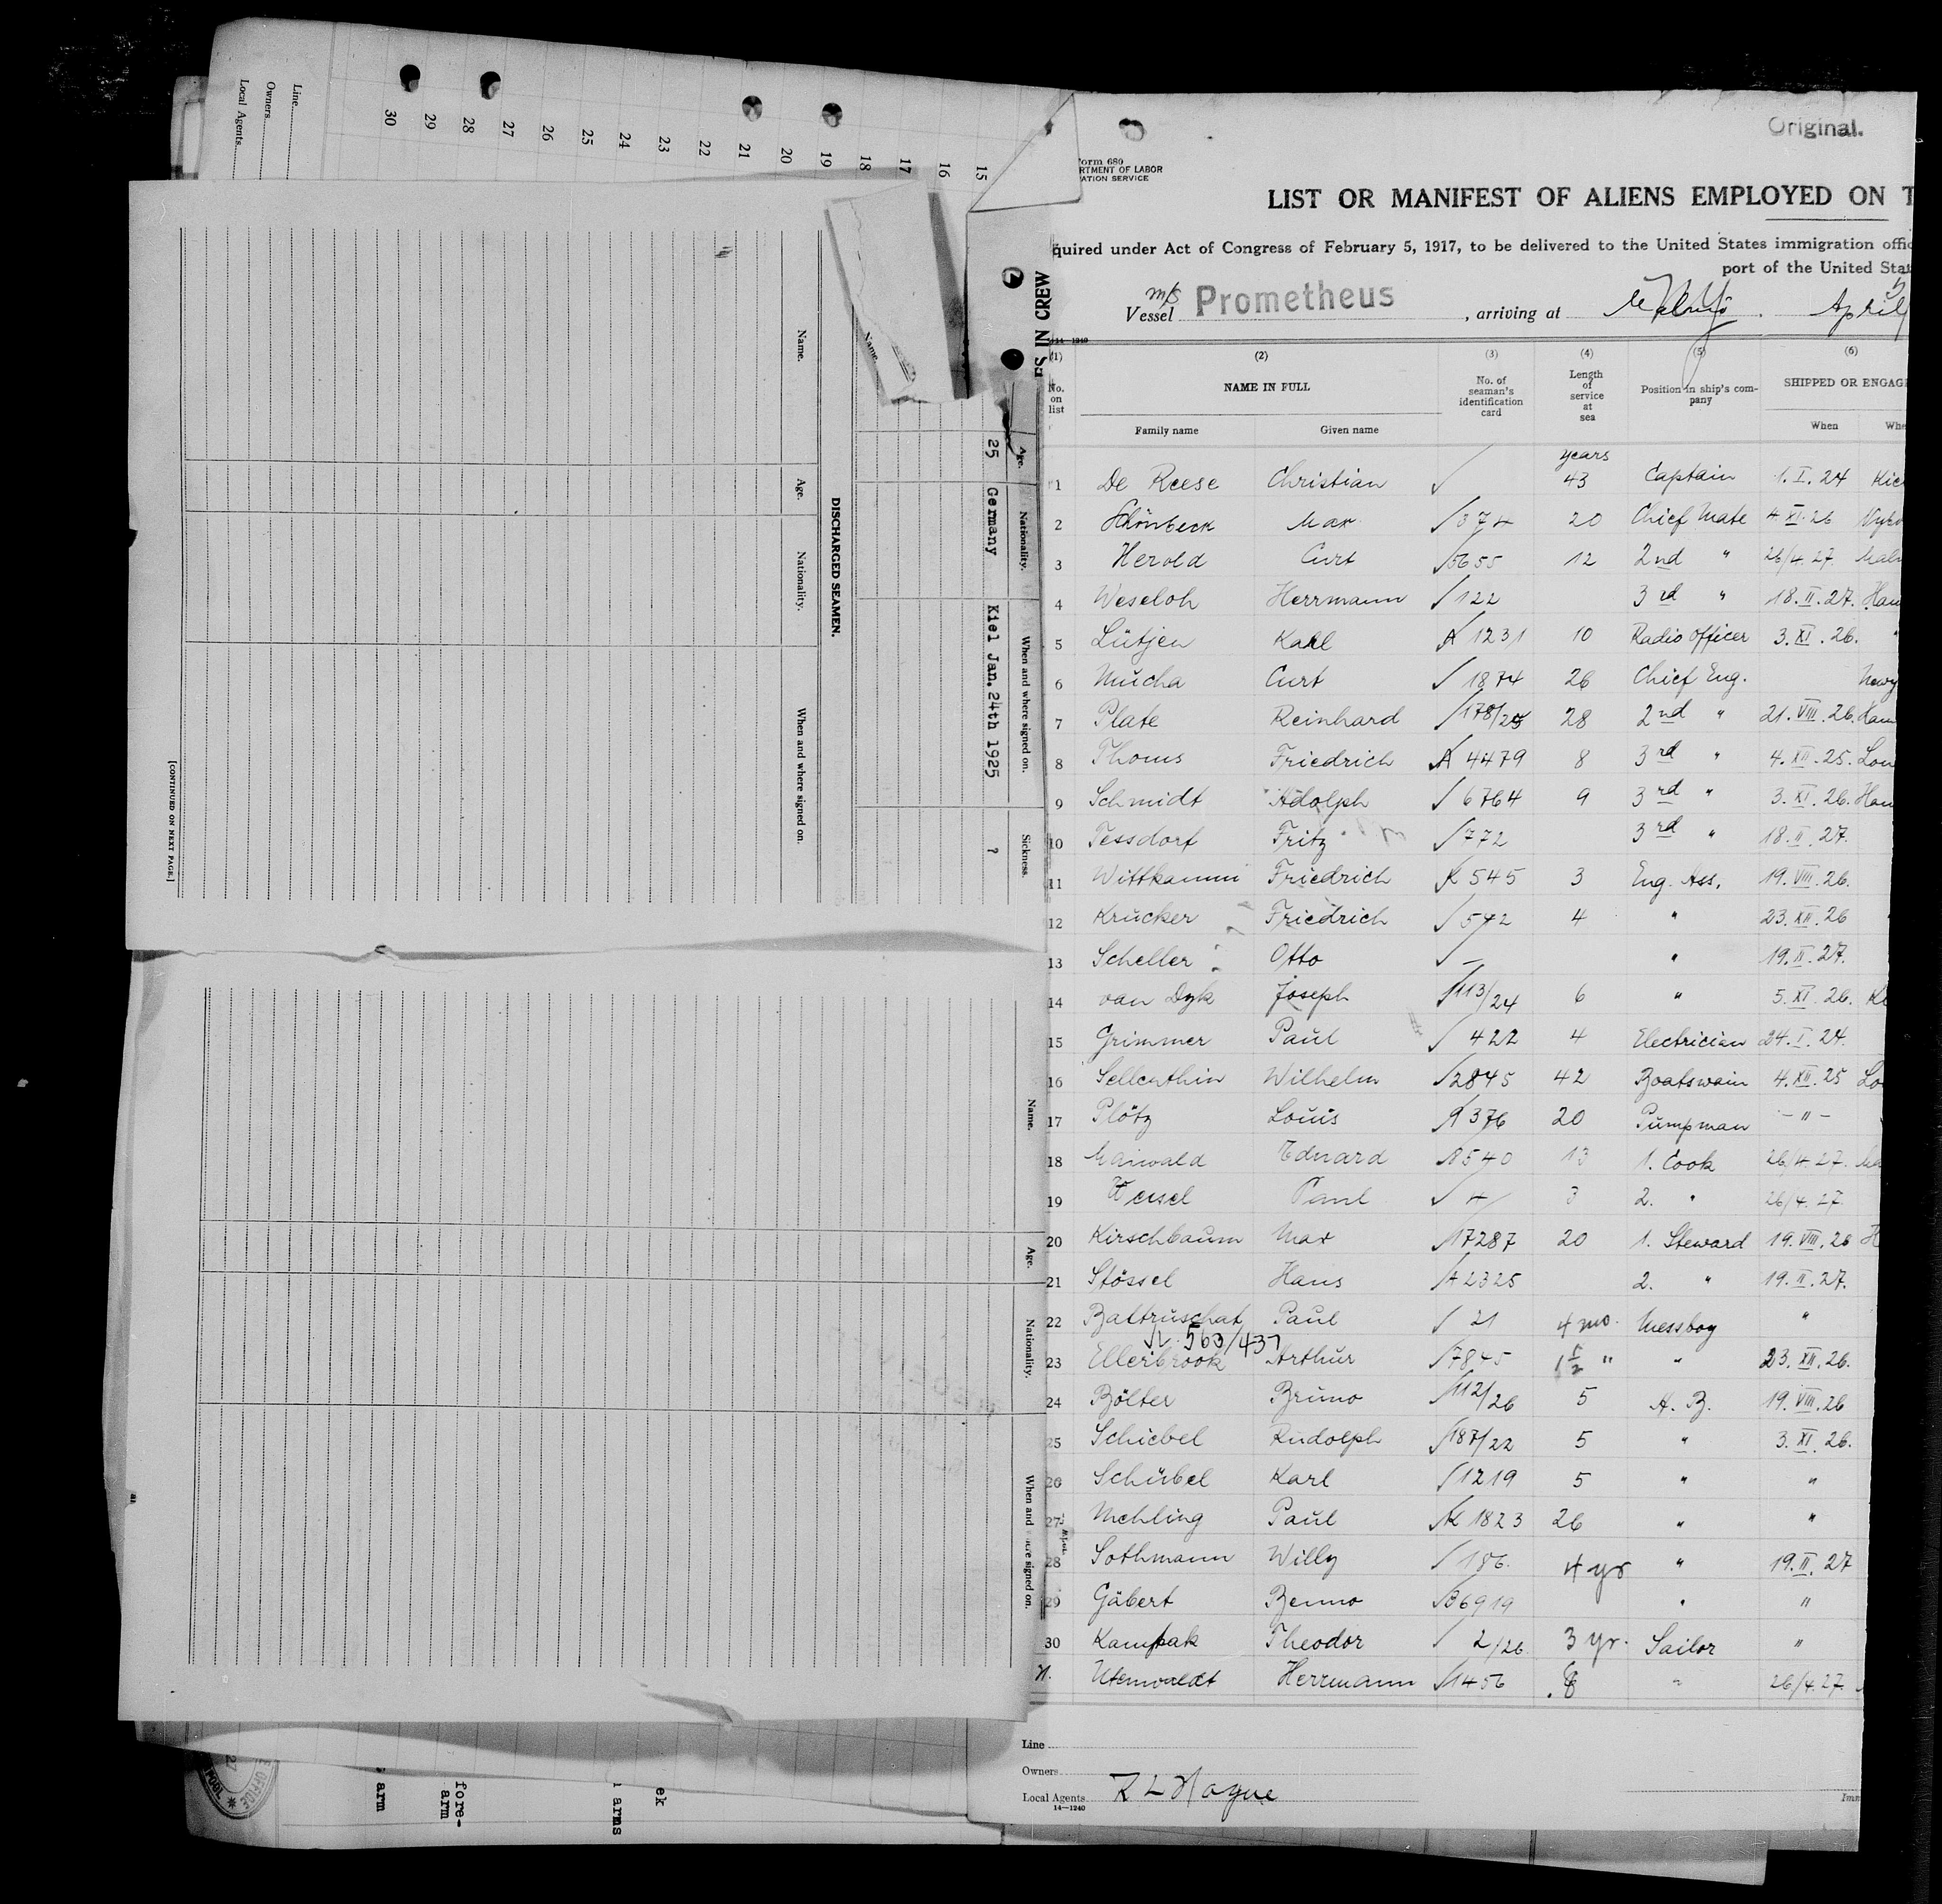 Line
Owners
Local Agents
30 29 28 27 26 25 24 23 22 21 20 19 18 17 16 15
Name.
Age.
Nationality.
When and where signed on.
DISCHARGED SEAMEN.
[CONTINUED ON NEXT PAGE.]
Name.
Age.
Nationality.
When and where signed on.
Sickness.
25 Germany Kiel Jan. 24th 1925 ?
Name.
Age.
Nationality.
When and where signed on.
ES IN CREW
fore-
arm
arm
ek
arms
Original.
orm 680
RTMENT OF LABOR
ATION SERVICE
LIST OR MANIFEST OF ALIENS EMPLOYED ON T
quired under Act of Congress of February 5, 1917, to be delivered to the United States immigration offic
port of the United Stat
m/s
Vessel Prometheus , arriving at April
14-1240
(1) (2) (3) (4) (5) (6)
No. on list NAME IN FULL No. of seaman's identification card Length of service at sea Position in ship's company SHIPPED OR ENGAG
Family name Given name When Whe
years
1 De Reese Christian 43 Captain 1. I. 24 Kie
2 Schönbeck Max 374 20 Chief Mate 4. XI. 26
3 Herold Curt 5655 12 2nd " 26/4. 27. Mal
4 Weseloh Herrmann 122 3rd " 18. II. 27. Ham
5 Lütjen Karl A 1231 10 Radio officer 3. XI. 26. "
6 Mucha Curt 1874 26 Chief Eng.
7 Plate Reinhard 178/25 28 2nd " 21. VIII. 26. Ham
8 Thoms Friedrich A 4479 8 3rd " 4. XII. 25. Lon
9 Schmidt Adolph 6764 9 3rd " 3. XI. 26. Ham
10 Tessdorf Fritz 772 3rd " 18. II. 27.
11 Wittkamm Friedrich K 545 3 Eng. Ass. 19. VIII. 26.
12 Krücker Friedrich 542 4 " 23. XII. 26
13 Scheller Otto – " 19. II. 27.
14 van Dyk Joseph 113/24 6 " 5. XI. 26. Ki
15 Grimmer Paul 422 4 Electrician 24. I. 24.
16 Sellenthin Wilhelm 2845 42 Boatswain 4. XII. 25 Lo
17 Plötz Louis A 376 20 Pumpman – " –
18 Maiwald Eduard 8540 13 1. Cook 26/4. 27. Ma
19 Paul 3 2. " 26/4. 27.
20 Kirschbaum Max 17287 20 1. Steward 19. VIII. 26 H
21 Stössel Hans A 2325 2. " 19. II. 27.
22 Battruschat Paul 21 4 mo. Messboy "
563/437
23 Ellerbrook Arthur 7845 1½ " " 23. XII. 26.
24 Bölter Bruno 112/26 5 A. B. 19. VIII. 26
25 Schiebel Rudolph 187/22 5 " 3. XI. 26.
26 Schübel Karl 1219 5 " "
27 Mehling Paul K 1823 26 " "
28 Sothmann Willy 186. 4 yr " 19. II. 27
29 Gäbert Benno 36919 " "
30 Kampak Theodor 2/26. 3 yr. Sailor "
Utenwoldt Herrmann 1456 8 " 26/4. 27.
Line
Owners
Local Agents R L Hague
14-1240
Imm